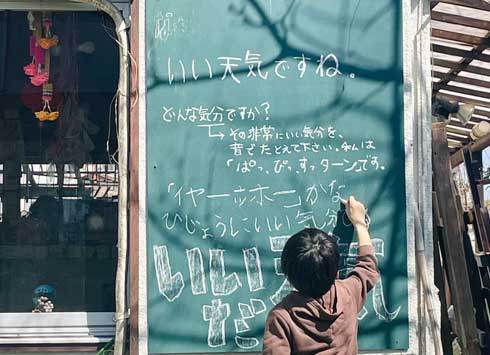 いい天気ですね。
どんな気分ですか?
その非常にいい気分を、
音でたとえて下さい。チャムは
「ぱっ、ぴっ、すっターン」です。
「イヤーッホー」かな
ひじょうにいい気分
いい天気
だ